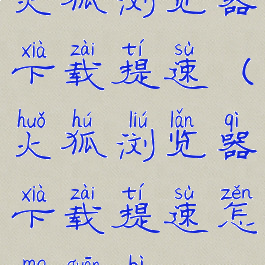 火狐浏览器
xià zài tí sù
下载提速（
huǒ hú liú lǎn qì
火狐浏览器
xià zài tí sù zěn
下载提速怎
me guān bì